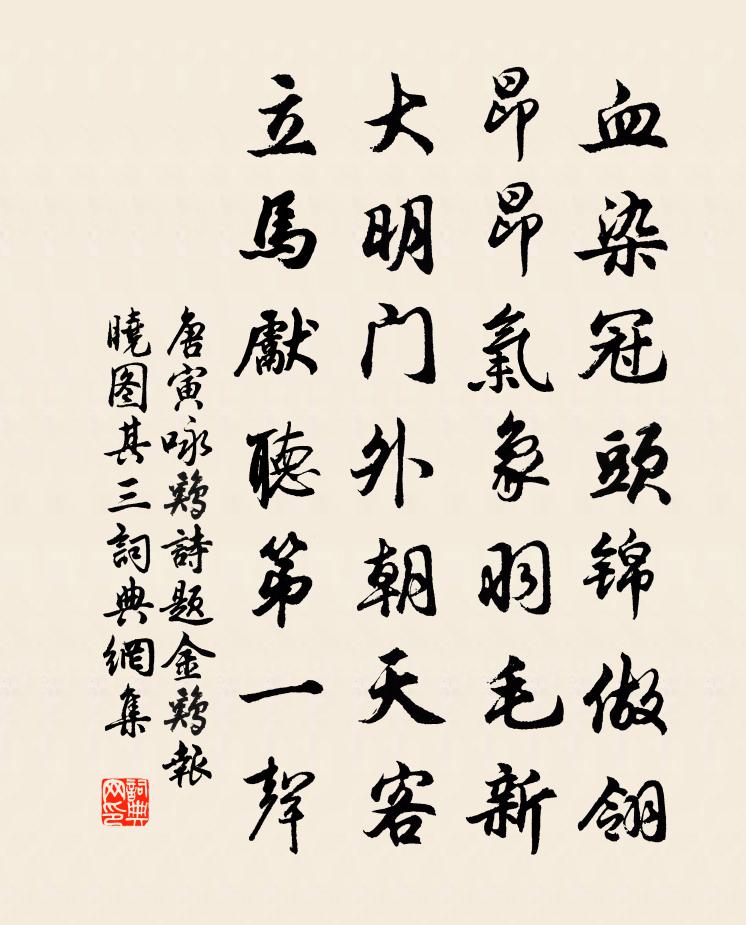 血染冠頭錦做翎
昂昂氣象羽毛新
大明门外朝天客
立馬獻聽第一聲
唐寅咏鷄詩题金鷄報
曉图其三詞典網集
詞典网印